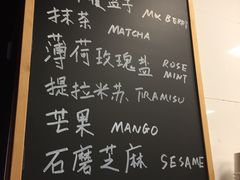 子 MK BERRY
抹茶 MATCHA
薄荷玫瑰盐 ROSE MINT
提拉米苏 TIRAMISU
芒果 MANGO
石磨芝麻 SESAME